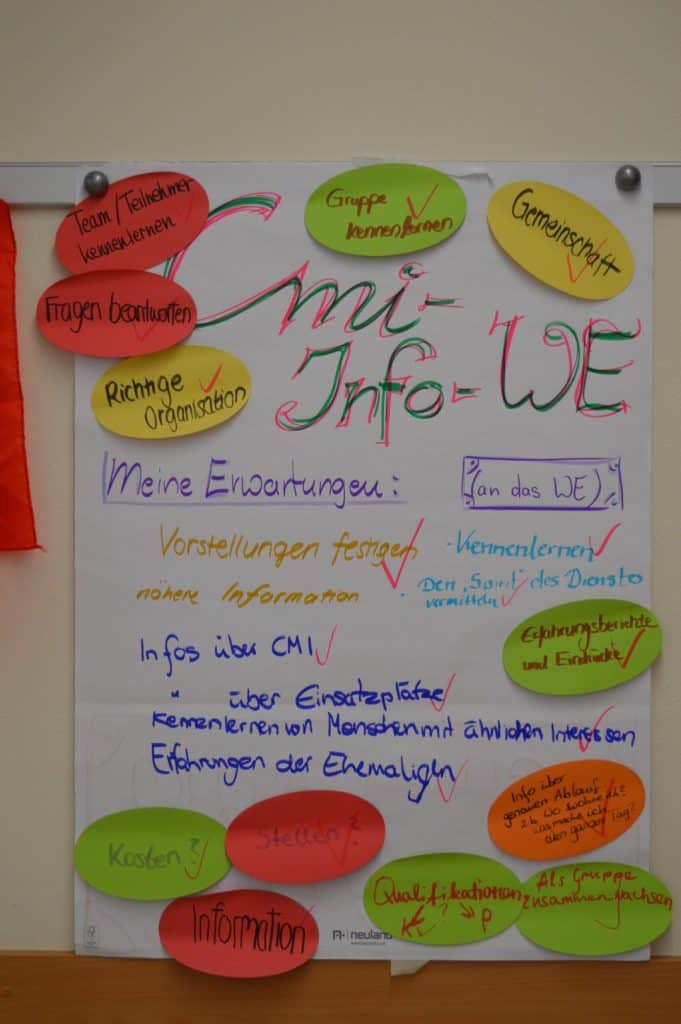 Team/Teilnehmer
kennenlernen
Gruppe
kennenlernen
Gemeinschaft
Fragen beantworten
Richtige
Organisation
Cmi-
Info-WE
Meine Erwartungen:
(an das WE)
Vorstellungen festigen
nähere Information
· Kennenlernen
· Den "Spirit" des Dienstes
vermitteln
Erfahrungsberichte
und Eindrücke
Infos über CMI
" über Einsatzplätze
Kennenlernen von Menschen mit ähnlichen Interessen
Erfahrungen der Ehemaligen
Info über
genauen Ablauf
z.b. wo wohne ich?
was mache ich
den ganzen Tag?
Kosten?
Stellen?
Information
Qualifikationen
?
P
Als Gruppe
zusammenwachsen
neuland